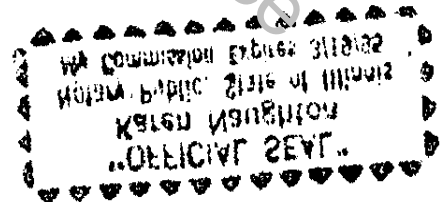 "OFFICIAL SEAL"
Karen Naughton
Notary Public, State of Illinois
My Commission Expires 3/19/95